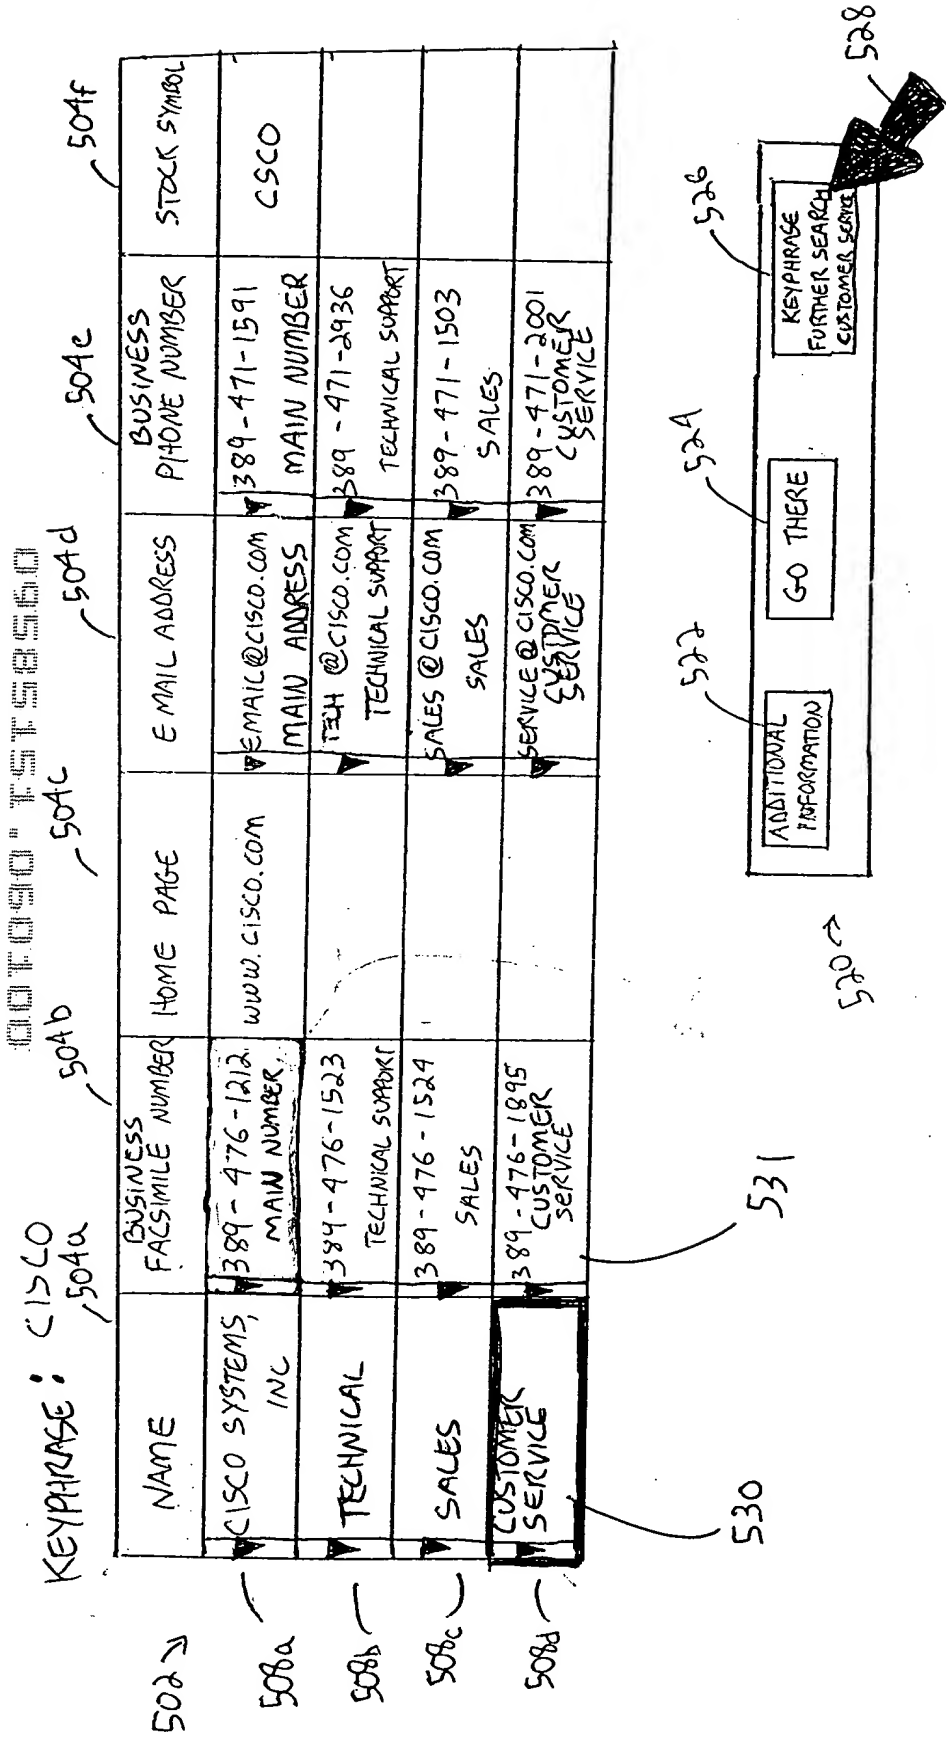 KEYPHRASE: CISCO
504a
504b
504c
504d
504e
504f
502
NAME
BUSINESS
FACSIMILE NUMBER
HOME PAGE
E MAIL ADDRESS
BUSINESS
PHONE NUMBER
STOCK SYMBOL
508a
CISCO SYSTEMS,
INC
389-476-1212
MAIN NUMBER
WWW.CISCO.COM
EMAIL@CISCO.COM
MAIN ADDRESS
389-471-1591
MAIN NUMBER
CSCO
508b
TECHNICAL
384-476-1523
TECHNICAL SUPPORT
TECH@CISCO.COM
TECHNICAL SUPPORT
389-471-2936
TECHNICAL SUPPORT
508c
SALES
389-476-1524
SALES
SALES@CISCO.COM
SALES
389-471-1503
SALES
508d
CUSTOMER
SERVICE
389-476-1895
CUSTOMER
SERVICE
SERVICE@CISCO.COM
CUSTOMER
SERVICE
389-471-2001
CUSTOMER
SERVICE
530
531
520
522
524
526
528
ADDITIONAL
INFORMATION
GO THERE
KEYPHRASE
FURTHER SEARCH
CUSTOMER SERVICE